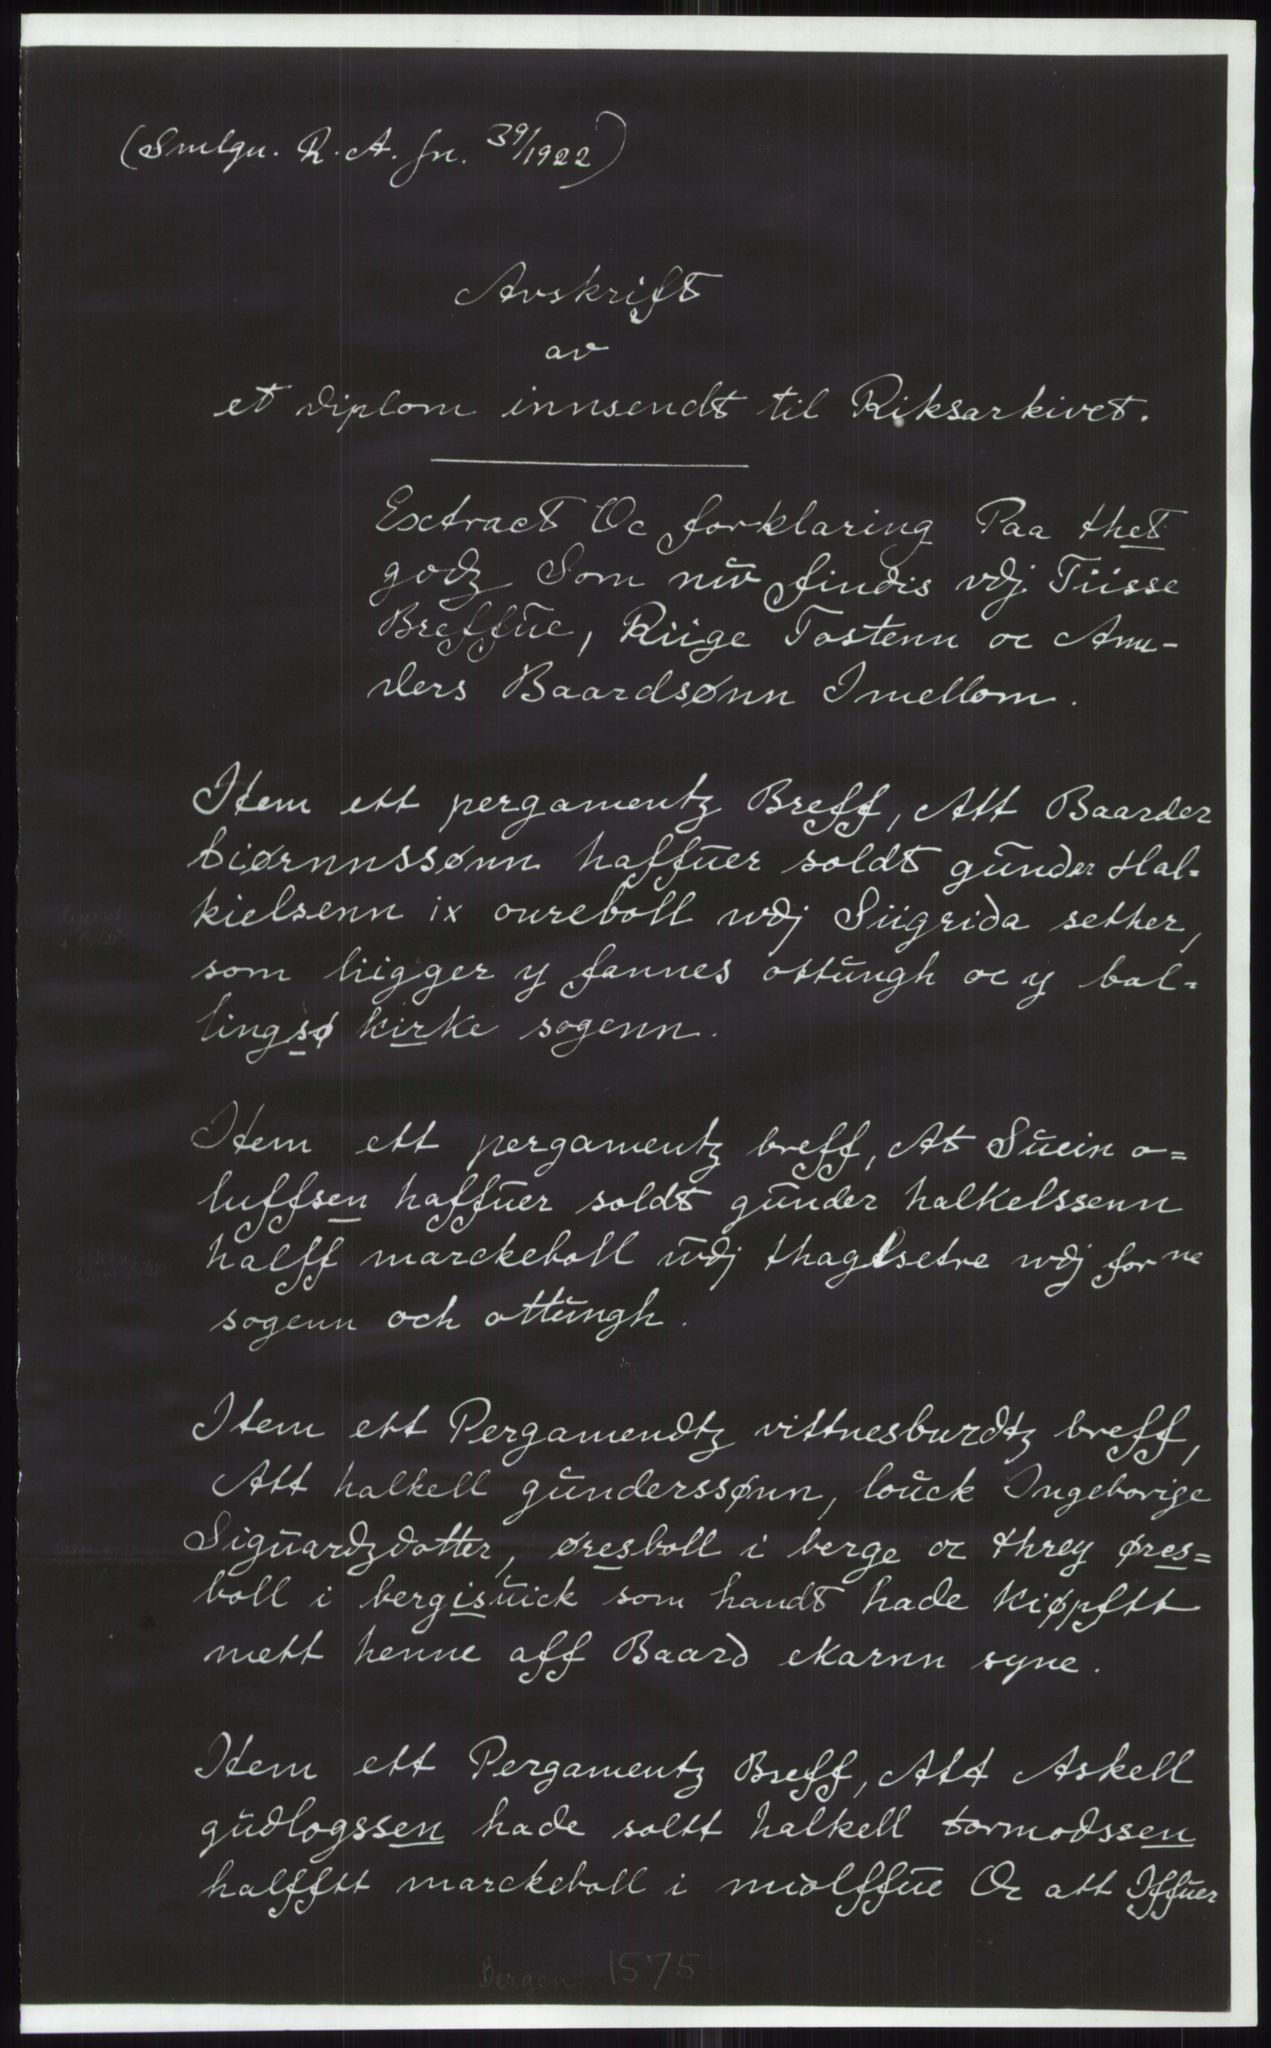 (Smlgn. R. A. jn. 39/1922)
Avskrift
av
et diplom innsendt til Riksarkivet.
Extract Oc forklaring Paa thet
godz Som nŭ findis vdj Tiisse
Breffŭe, Riige Tostenn oc Ann-
ders Baardsønn Imellom.
Item ett pergamentz Breff, Att Baarder
biørnnssønn haffŭer soldt gŭnder Hal=
kielsenn ix oureboll wdj Siigrida sether,
som liigger y fannes ottŭngh oc y bal=
lingsø kirke sogenn.
Item ett pergamentz breff, At Sŭein o=
luffsen haffŭer soldt gŭnder halkelssenn
halff marckeboll ŭdj thaglsetre wdj forne
sogenn och ottŭngh.
Item ett Pergamendtz vittnesburdtz breff,
Att halkell gŭnderssønn, loŭck Ingeborige
Sigŭardzdotter, øresboll i berge oc threy øres=
boll i bergisŭick som handt hade kiøpftt
mett henne aff Baard ekarnn syne.
Item ett Pergamentz Breff, Att Askell
gŭdlogssen hade soltt halkell tormodssen
halfftt marckeboll i miolffŭe Oc att Iffŭer
Bergen 1575